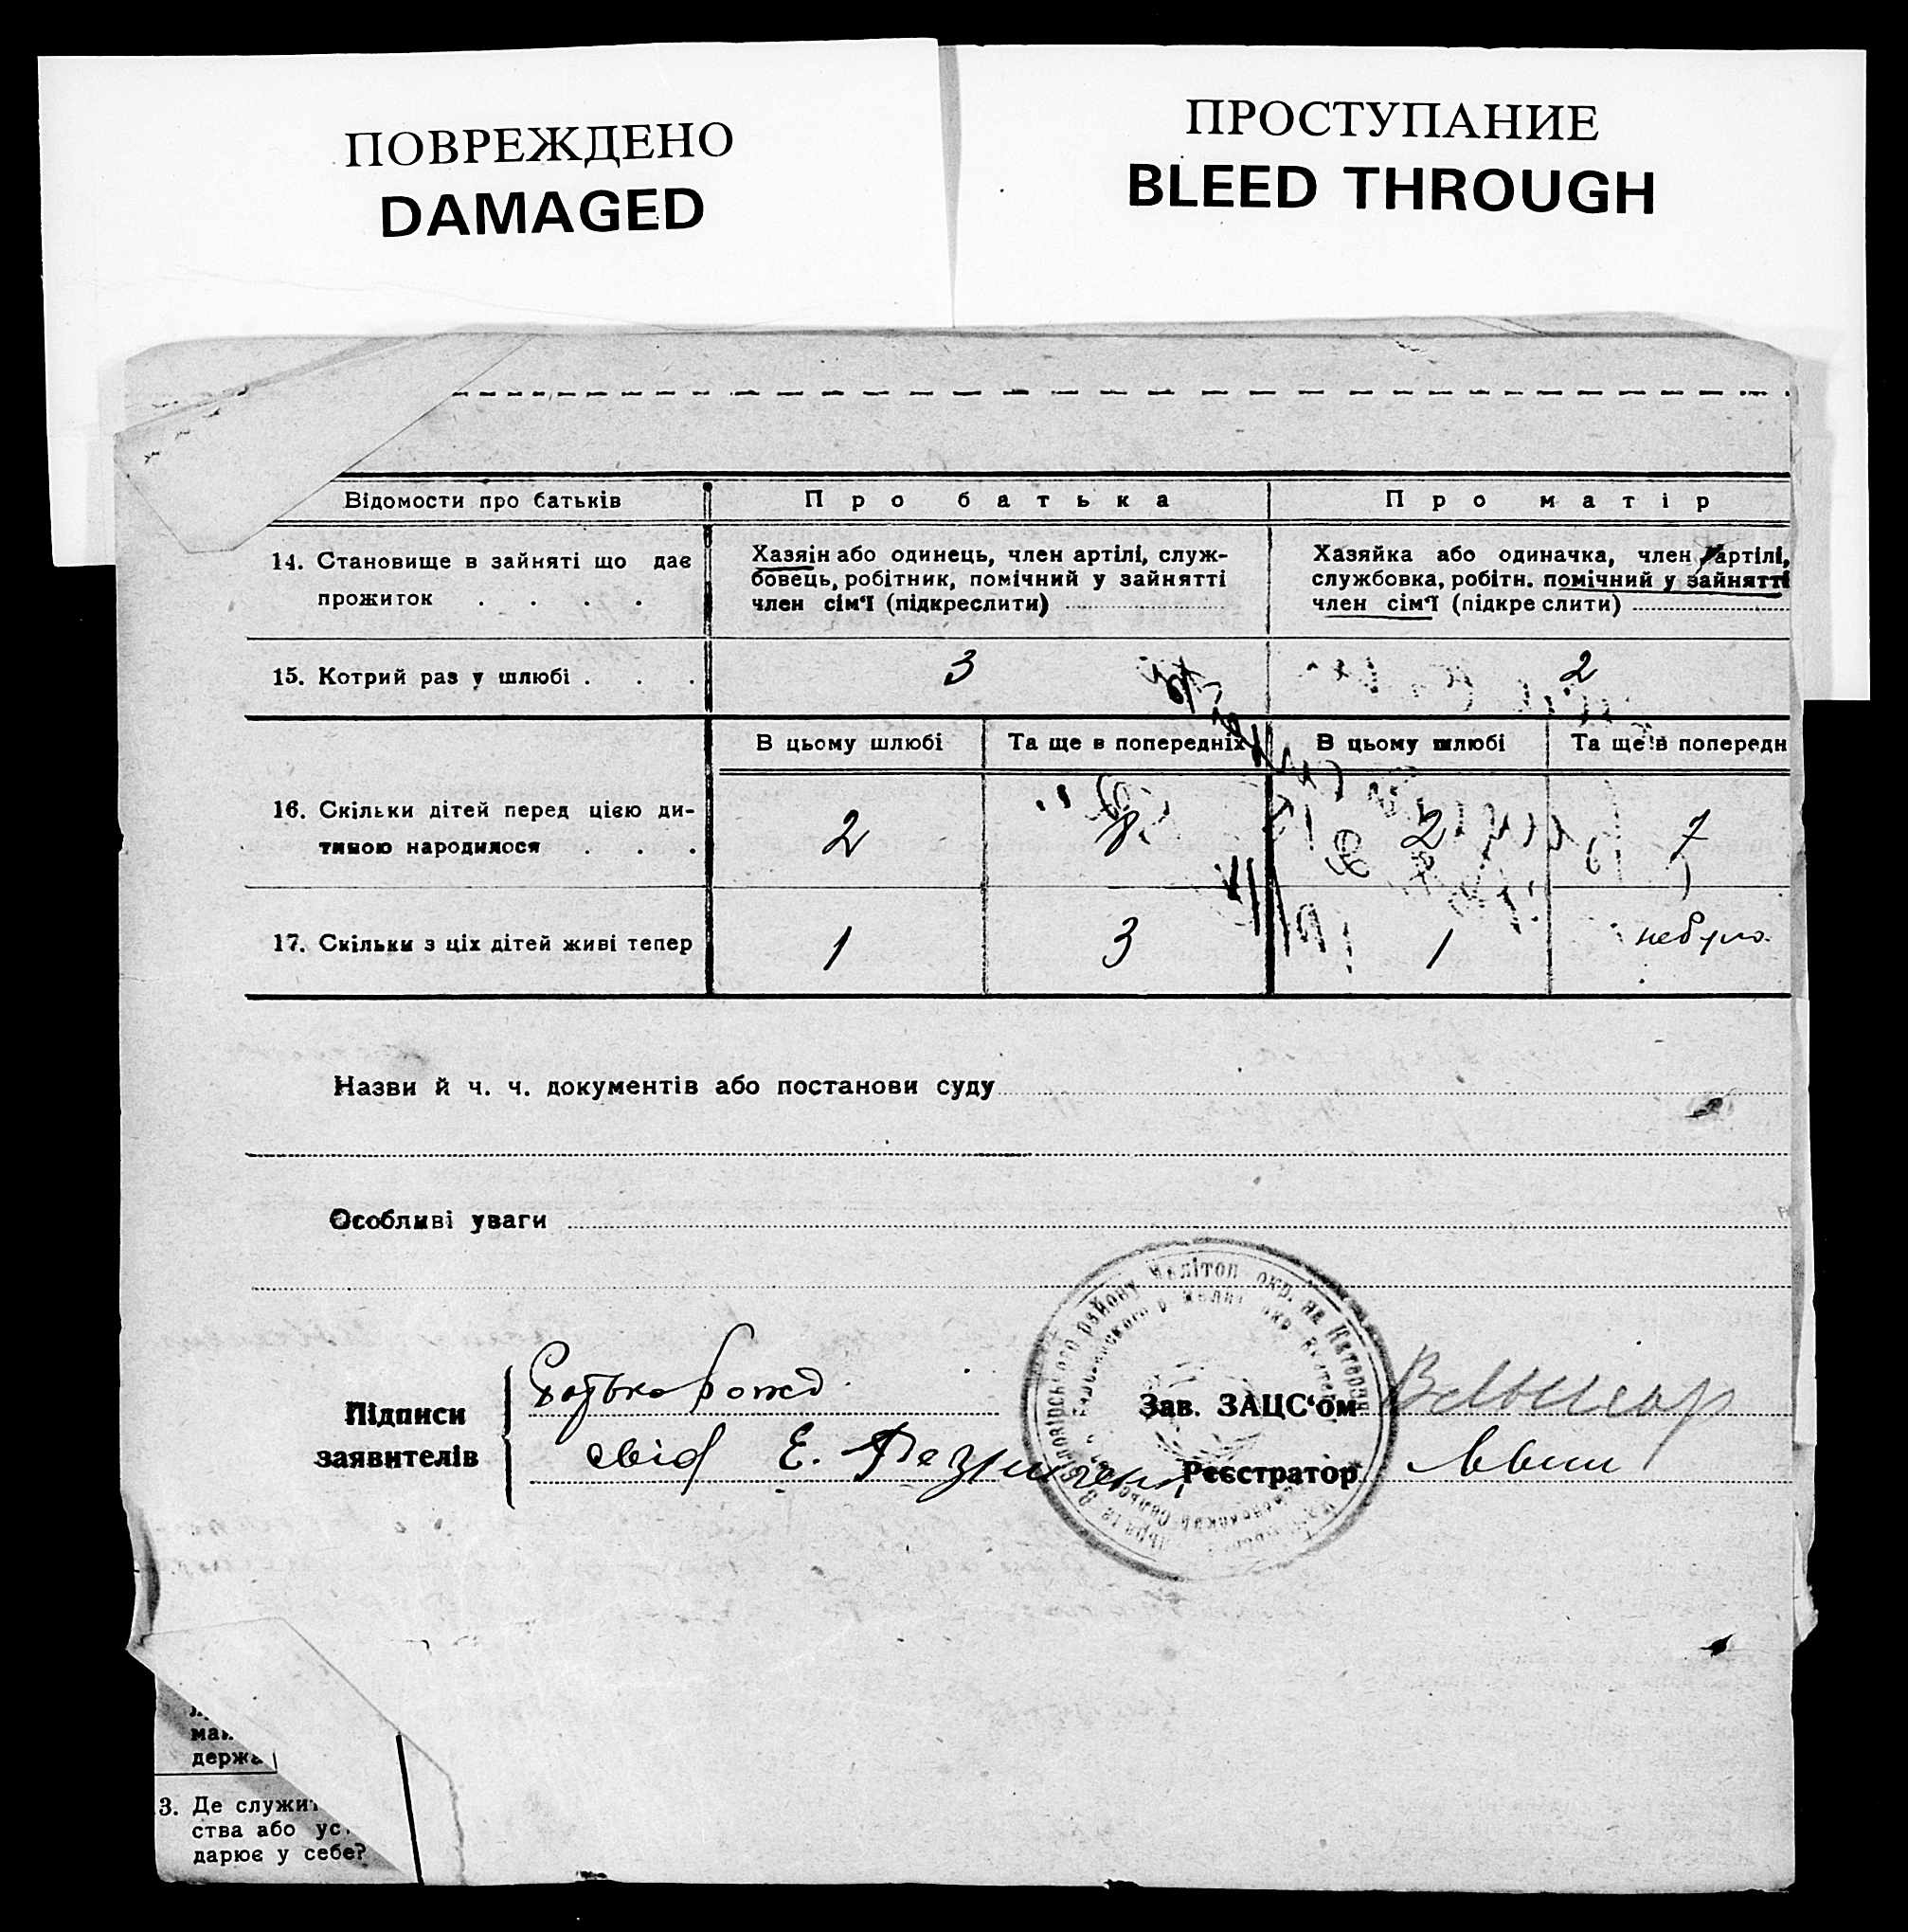 ПОВРЕЖДЕНО
DAMAGED
ПРОСТУПАНИЕ
BLEED THROUGH
Відомости про батьків
Про батька
Про матір
14. Становище в зайняті що дає
прожиток . . . .
Хазяїн або одинець, член артілі, служ-
бовець, робітник, помічний у зайнятті
член сім'ї (підкреслити)
Хазяйка або одиначка, член артілі,
службовка, робітн. помічний у зайнятті
член сім'ї (підкреслити)
15. Котрий раз у шлюбі . . .
3
2
В цьому шлюбі
Та ще в попередніх
В цьому шлюбі
Та ще в попередн
16. Скільки дітей перед цією ди-
тиною народилося . . .
2
8
2
7
17. Скільки з ціх дітей живі тепер
1
3
1
Назви й ч. ч. документів або постанови суду
Особливі уваги
Підписи
заявителів
свід Е.
району Мелітоп. окр. на Катеринос
Зав. ЗАЦС'ом
Реєстратор
держа
3. Де служит
ства або ус
дарює у себе?